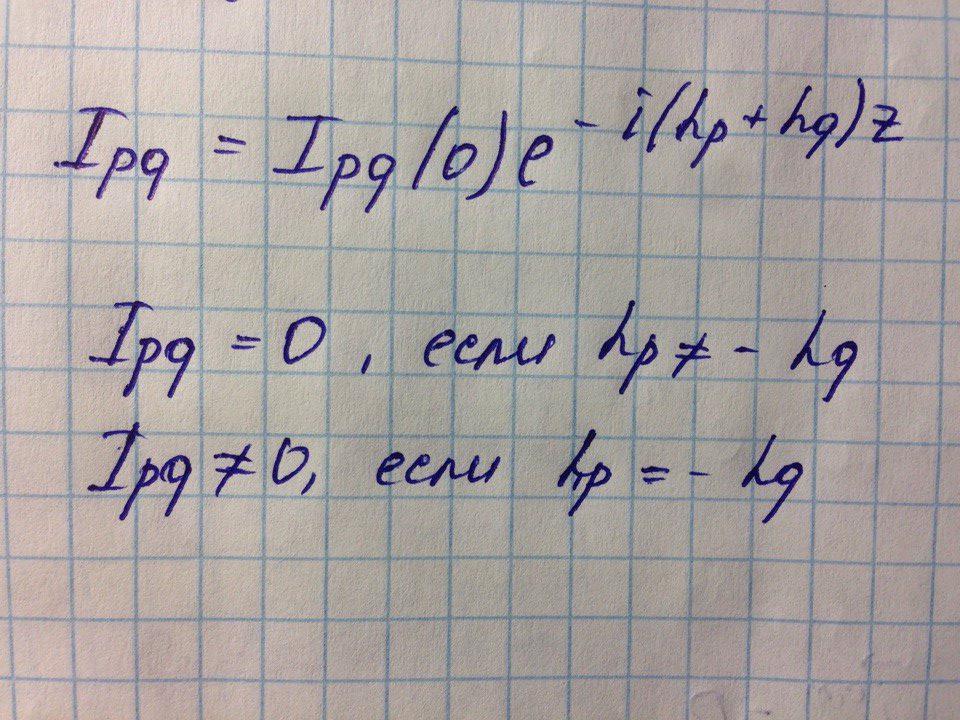 Ipq = Ipq(0)e^{-i(hp+hq)z}
Ipq = 0, если hp ≠ - hq
Ipq ≠ 0, если hp = - hq